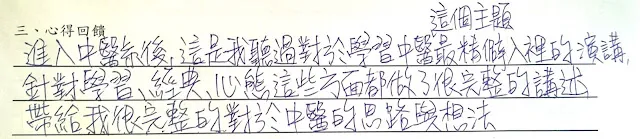 這個主題
三、心得回饋
進入中醫系後,這是我聽過對於學習中醫最精闢入裡的演講,
針對學習、經典、心態這些方面都做了很完整的講述
帶給我很完整的對於中醫的思路與想法